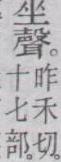 坐聲。
昨禾切。
十七部。